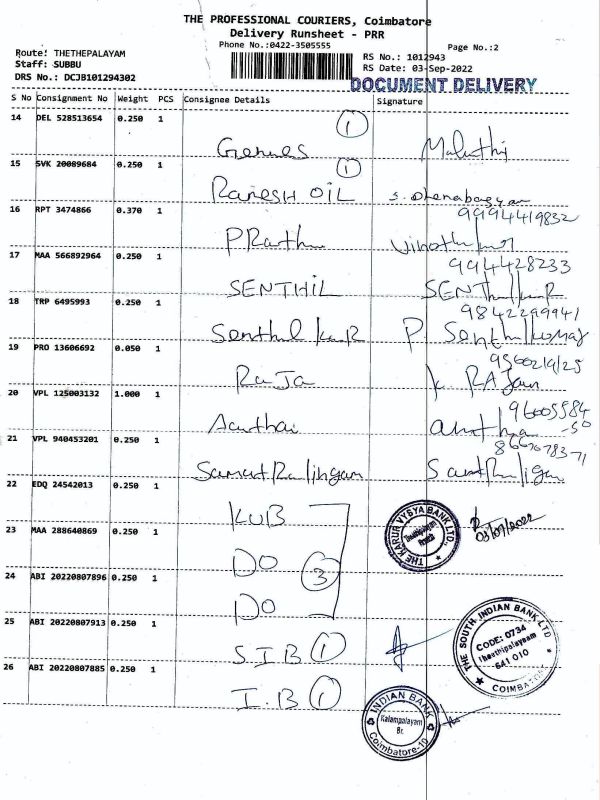 THE PROFESSIONAL COURIERS, Coimbatore
Delivery Runsheet - PRR
Phone No.:0422-3505555
Page No.:2
Route: THETHEPALAYAM
Staff: SUBBU
DRS No.: DCJB101294302
RS No.: 1012943
RS Date: 03-Sep-2022
DOCUMENT DELIVERY
S No Consignment No Weight PCS Consignee Details Signature
14 DEL 528513654 0.250 1
1
15 SVK 20089684 0.250 1
1
RAMESH OIL
16 RPT 3474866 0.370 1
9994419832
17 MAA 566892964 0.250 1
994428233
SENTHIL
18 TRP 6495993 0.250 1
9842299941
Senthil kuR P. Senthilkumar
19 PRO 13606692 0.050 1
RaJa K RAJan
20 VPL 125003132 1.000 1
96005584
-50
21 VPL 940453201 0.250 1
22 EDQ 24542013 0.250 1
KUB
THE KARUR VYSYA BANK LTD.,
Thethipalayam
Branch
03/09/2022
23 MAA 288640869 0.250 1
DO
3
24 ABI 20220807896 0.250 1
DO
25 ABI 20220807913 0.250 1
S.I.B 1
THE SOUTH INDIAN BANK LTD
CODE: 0734
Theethipalayaam
641 010
COIMBATORE
26 ABI 20220807885 0.250 1
I.B 1
INDIAN BANK
Kalampalayam
Br.
Coimbatore-10